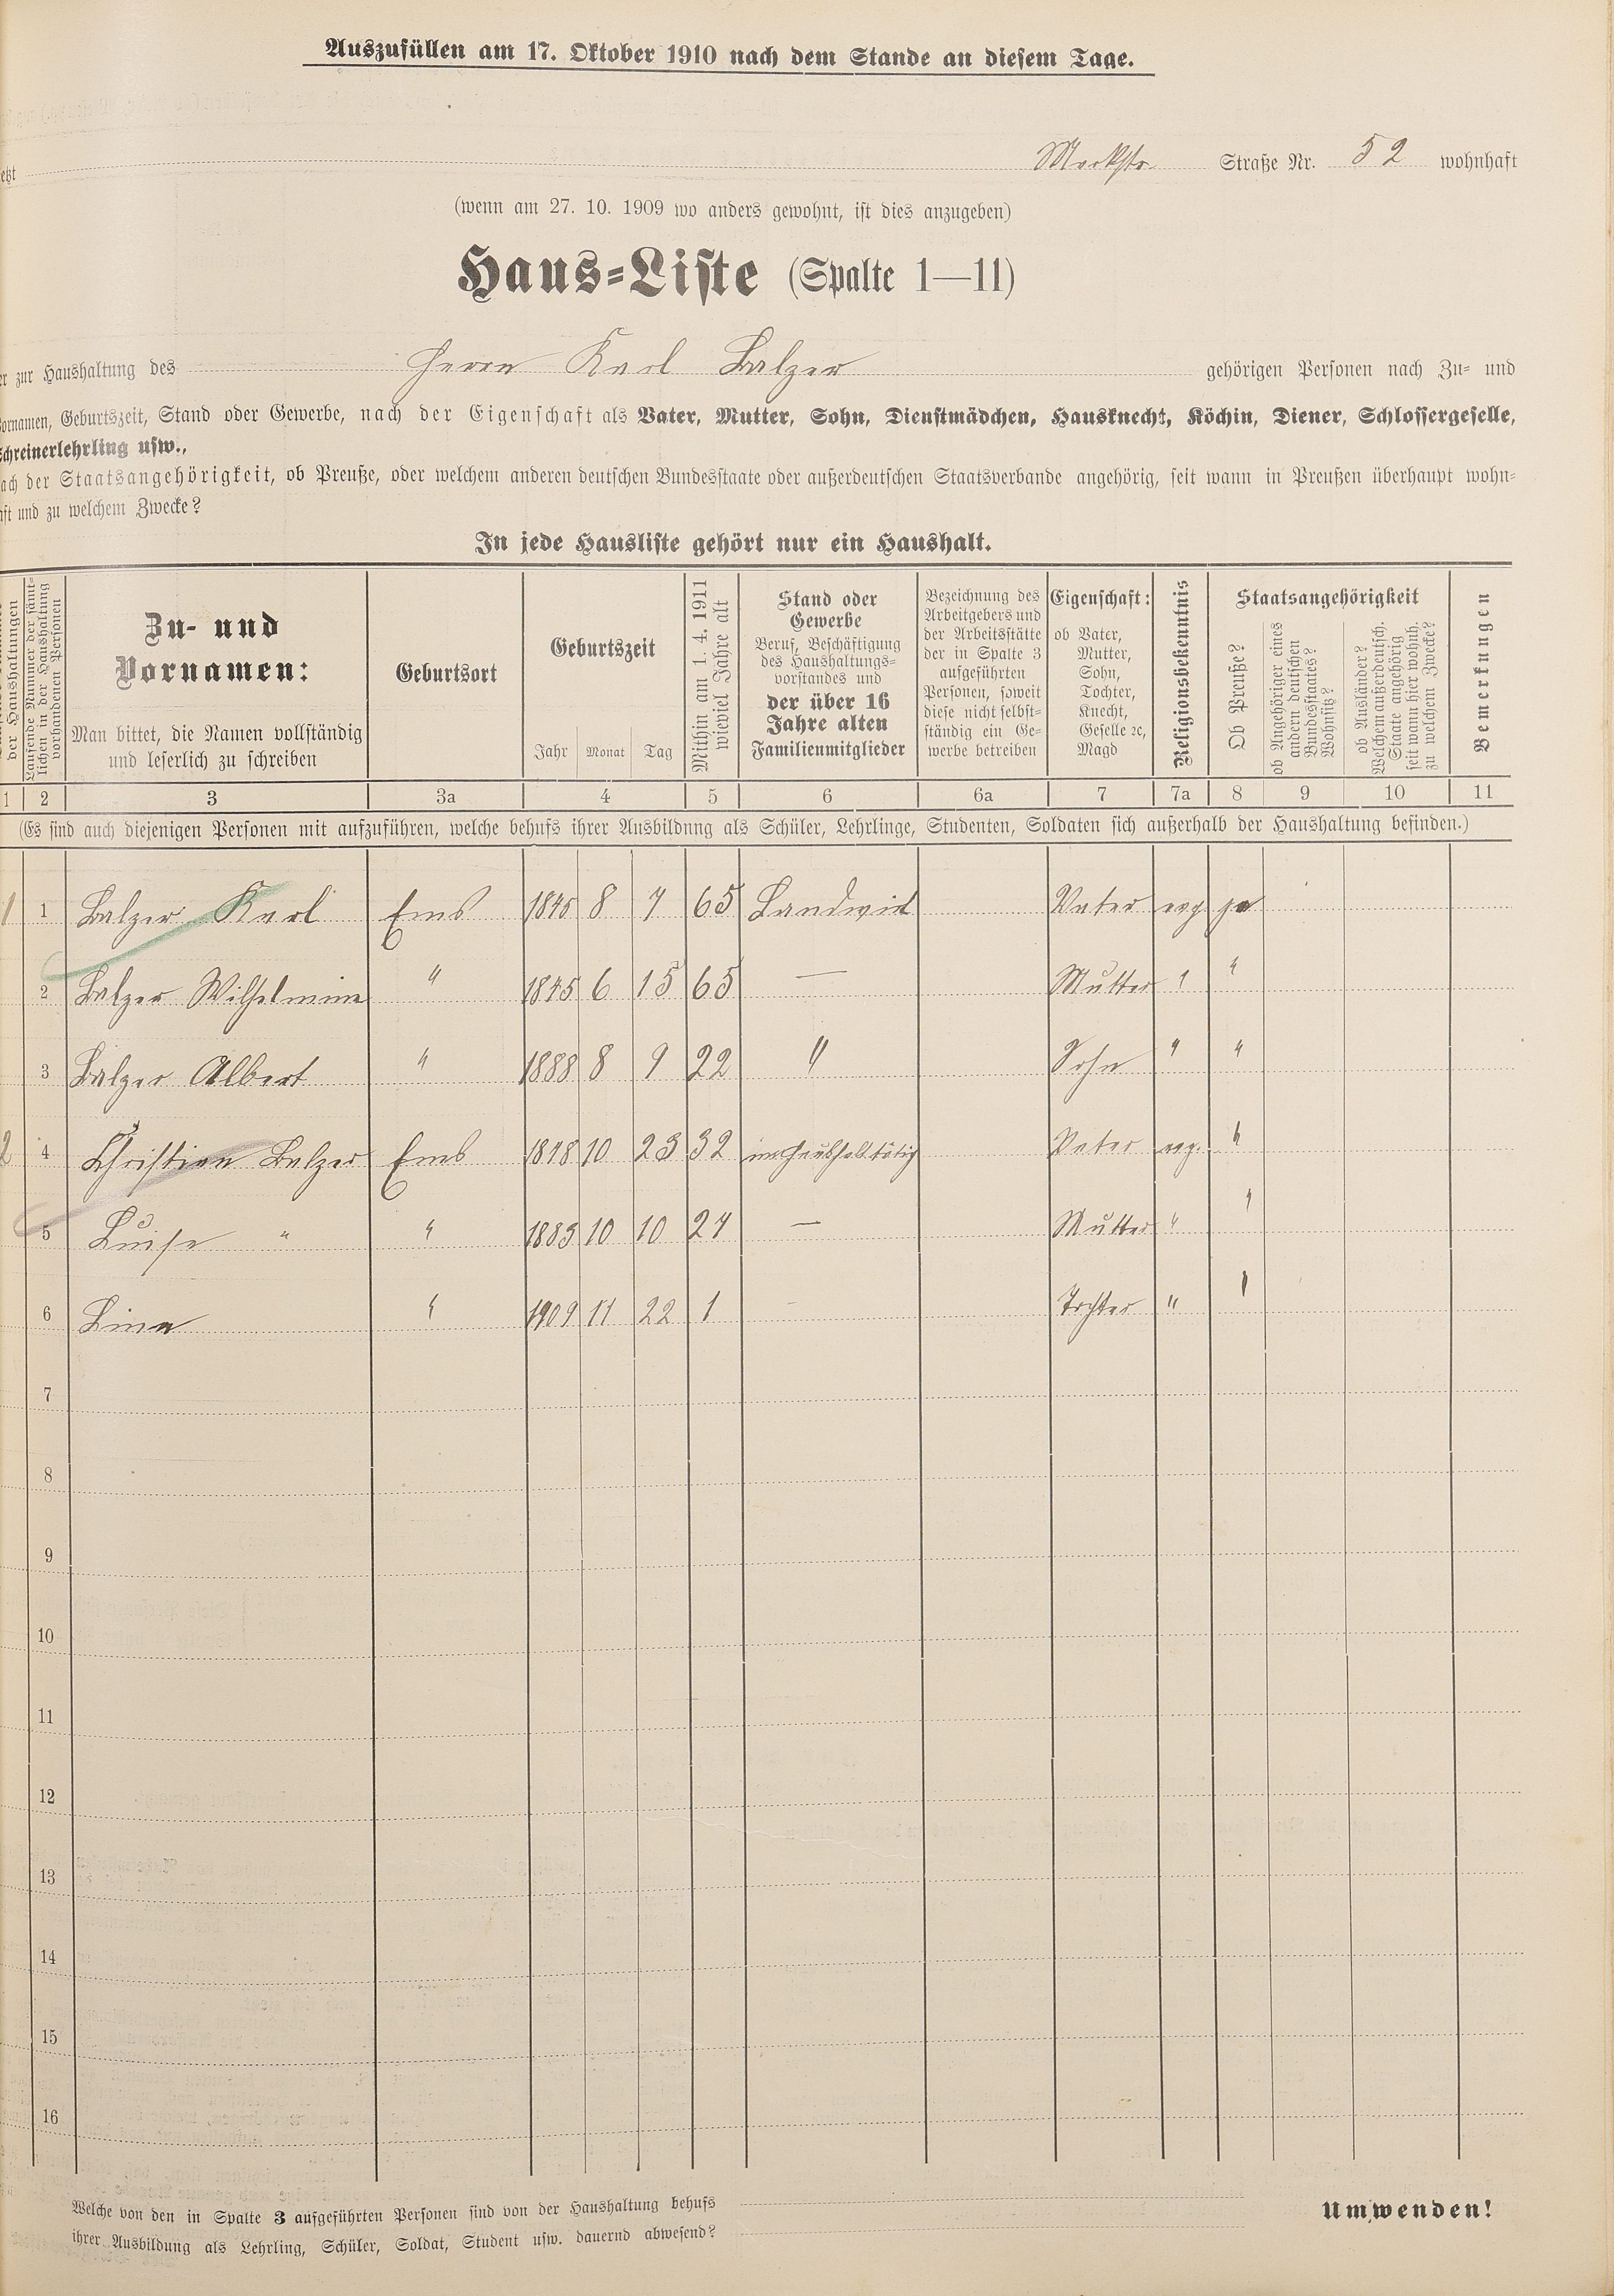 Auszufüllen am 17. Oktober 1910 nach dem Stande an diesem Tage.
Marktstr. Straße Nr. 52 wohnhaft
(wenn am 27. 10. 1909 wo anders gewohnt, ist dies anzugeben)
Haus-Liste (Spalte 1—11)
zur Haushaltung des Herrn Karl Balzer gehörigen Personen nach Zu- und
Vornamen, Geburtszeit, Stand oder Gewerbe, nach der Eigenschaft als Vater, Mutter, Sohn, Dienstmädchen, Hausknecht, Köchin, Diener, Schlossergeselle,
Schreinerlehrling usw.,
nach der Staatsangehörigkeit, ob Preuße, oder welchem anderen deutschen Bundesstaate oder außerdeutschen Staatsverbande angehörig, seit wann in Preußen überhaupt wohn-
haft und zu welchem Zwecke?
In jede Hausliste gehört nur ein Haushalt.
der Haushaltungen
Laufende Nummer der sämt-
lichen in der Haushaltung
vorhandenen Personen
Zu- und
Vornamen:
Man bittet, die Namen vollständig
und leserlich zu schreiben
Geburtsort
Geburtszeit
Jahr Monat Tag
Mithin am 1. 4. 1911
wieviel Jahre alt
Stand oder
Gewerbe
Beruf, Beschäftigung
des Haushaltungs-
vorstandes und
der über 16
Jahre alten
Familienmitglieder
Bezeichnung des
Arbeitgebers und
der Arbeitsstätte
der in Spalte 3
aufgeführten
Personen, soweit
diese nicht selbst-
ständig ein Ge-
werbe betreiben
Eigenschaft:
ob Vater,
Mutter,
Sohn,
Tochter,
Knecht,
Geselle ꝛc,
Magd
Religionsbekenntnis
Staatsangehörigkeit
Ob Preuße?
ob Angehöriger eines
andern deutschen
Bundesstaates?
Wohnsitz?
ob Ausländer?
Welchem außerdeutsch.
Staate angehörig
seit wann hier wohnh.
zu welchem Zwecke?
Bemerkungen
1 2 3 3a 4 5 6 6a 7 7a 8 9 10 11
(Es sind auch diejenigen Personen mit aufzuführen, welche behufs ihrer Ausbildung als Schüler, Lehrlinge, Studenten, Soldaten sich außerhalb der Haushaltung befinden.)
1 1 Balzer Karl Ems 1845 8 7 65 Landwirt Vater evg ja
2 Balzer Wilhelmine " 1845 6 15 65 — Mutter " "
3 Balzer Albert " 1888 8 9 22 " Sohn " "
2 4 Christian Balzer Ems 1878 10 23 32 im Haushalt tätig Vater evg. "
5 Luise " " 1883 10 10 27 — Mutter " "
6 Lina " 1909 11 22 1 - Tochter " "
7
8
9
10
11
12
13
14
15
16
Welche von den in Spalte 3 aufgeführten Personen sind von der Haushaltung behufs
ihrer Ausbildung als Lehrling, Schüler, Soldat, Student usw. dauernd abwesend?
Umwenden!